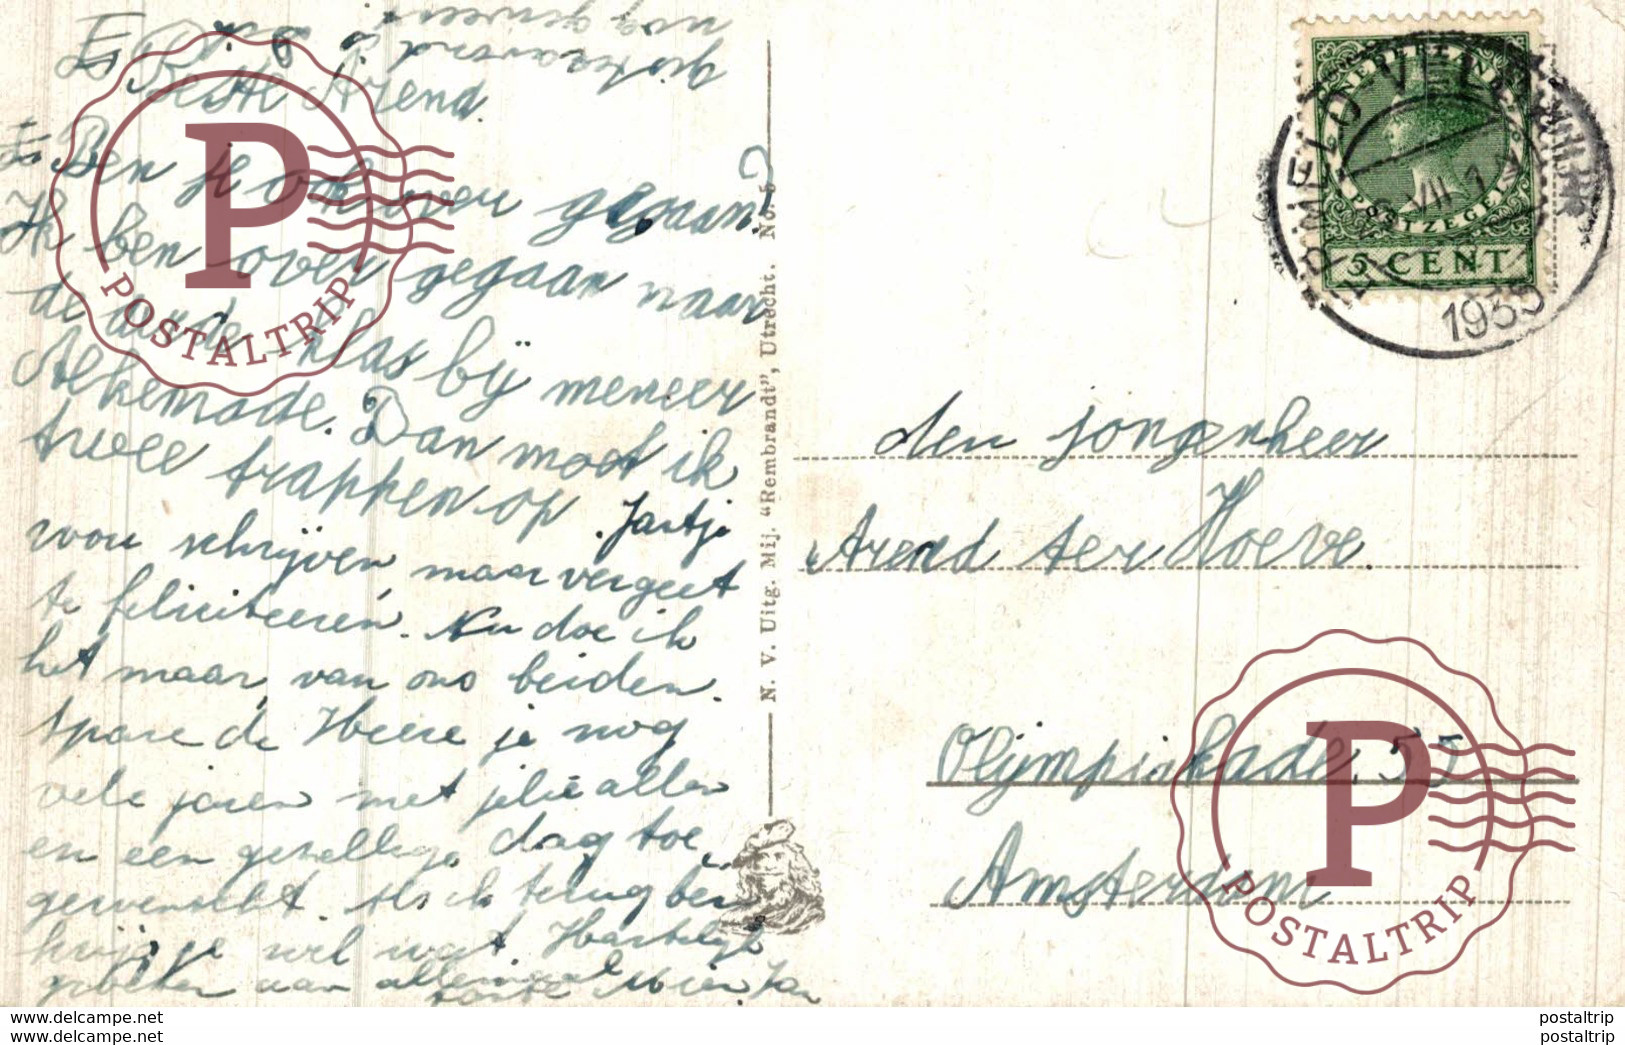 nog geweest
gisteravond
Beste Arend.
Ben je ook over gegaan?
Ik ben over gegaan naar
de derde klas bij meneer
Alkemade. Dan moet ik
twee trappen op. Jantje
wou schrijven maar vergeet
te feliciteeren. Nu doe ik
het maar van ons beiden.
Spare de Heere je nog
vele jaren met jelie allen
en een gezellige dag toe
gewenscht. Als ik terug ben
krijg je wel wat. Hartelijk
groeten van allemaal
tante Wien. Jan
N. V. Uitg. Mij. “Rembrandt”, Utrecht. No. 5
NEDERLAND
POSTZEGEL
5 CENT
HARMELO-VEL
VII
1935
den jongenheer
Arend ter Hoeve.
Olijmpiakade 55
Amsterdam
P
POSTALTRIP
P
POSTALTRIP
www.delcampe.net
www.delcampe.net
postaltrip
postaltrip